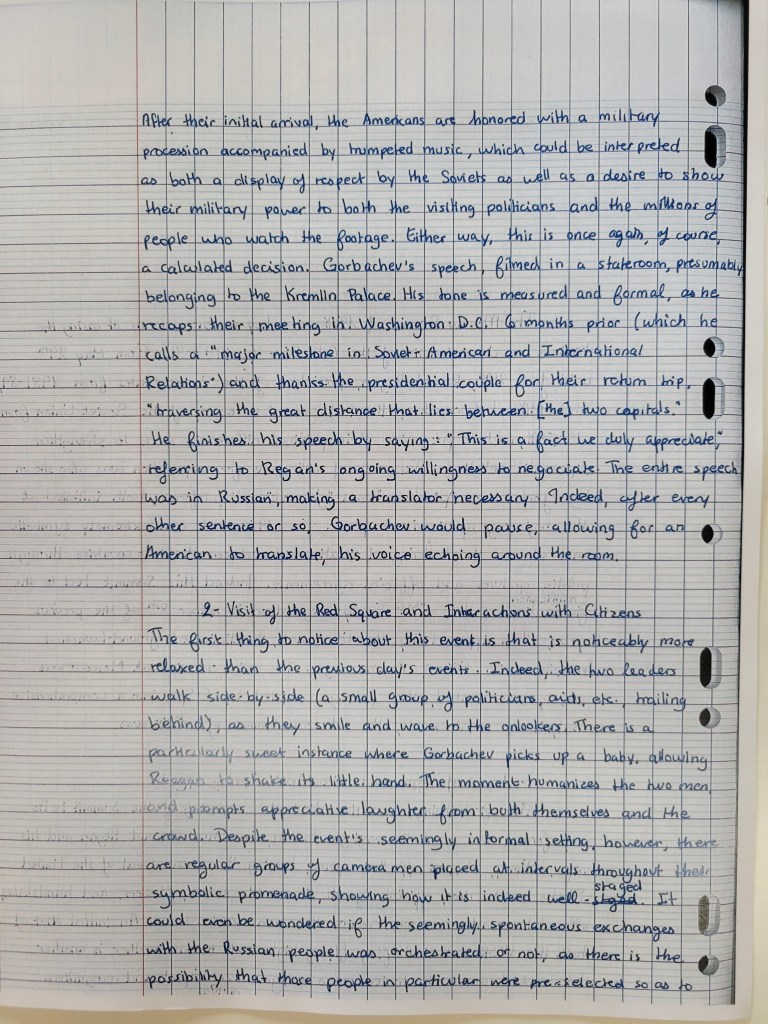 After their initial arrival, the Americans are honored with a military
procession accompanied by trumpeted music, which could be interpreted
as both a display of respect by the Soviets as well as a desire to show
their military power to both the visiting politicians and the millions of
people who watch the footage. Either way, this is once again, of course,
a calculated decision. Gorbachev's speech, filmed in a stateroom, presumably
belonging to the Kremlin Palace. His tone is measured and formal, as he
recaps their meeting in Washington D.C. 6 months prior (which he
calls a "major milestone in Soviet-American and International
Relations") and thanks the presidential couple for their return trip,
"traversing the great distance that lies between [the] two capitals."
He finishes his speech by saying: "This is a fact we duly appreciate,"
referring to Regan's ongoing willingness to negociate. The entire speech
was in Russian, making a translator necessary. Indeed, after every
other sentence or so, Gorbachev would pause, allowing for an
American to translate, his voice echoing around the room.
2- Visit of the Red Square and Interactions with Citizens
The first thing to notice about this event is that is noticeably more
relaxed than the previous day's events. Indeed, the two leaders
walk side-by-side (a small group of politicians, aids, etc., trailing
behind), as they smile and wave to the onlookers. There is a
particularly sweet instance where Gorbachev picks up a baby, allowing
Reagan to shake its little hand. The moment humanizes the two men,
and prompts appreciative laughter from both themselves and the
crowd. Despite the event's seemingly informal setting, however, there
are regular groups of cameramen placed at intervals throughout their
symbolic promenade, showing how it is indeed well-staged. It
could even be wondered if the seemingly spontaneous exchanges
with the Russian people was orchestrated or not, as there is the
possibility that those people in particular were pre-selected so as to